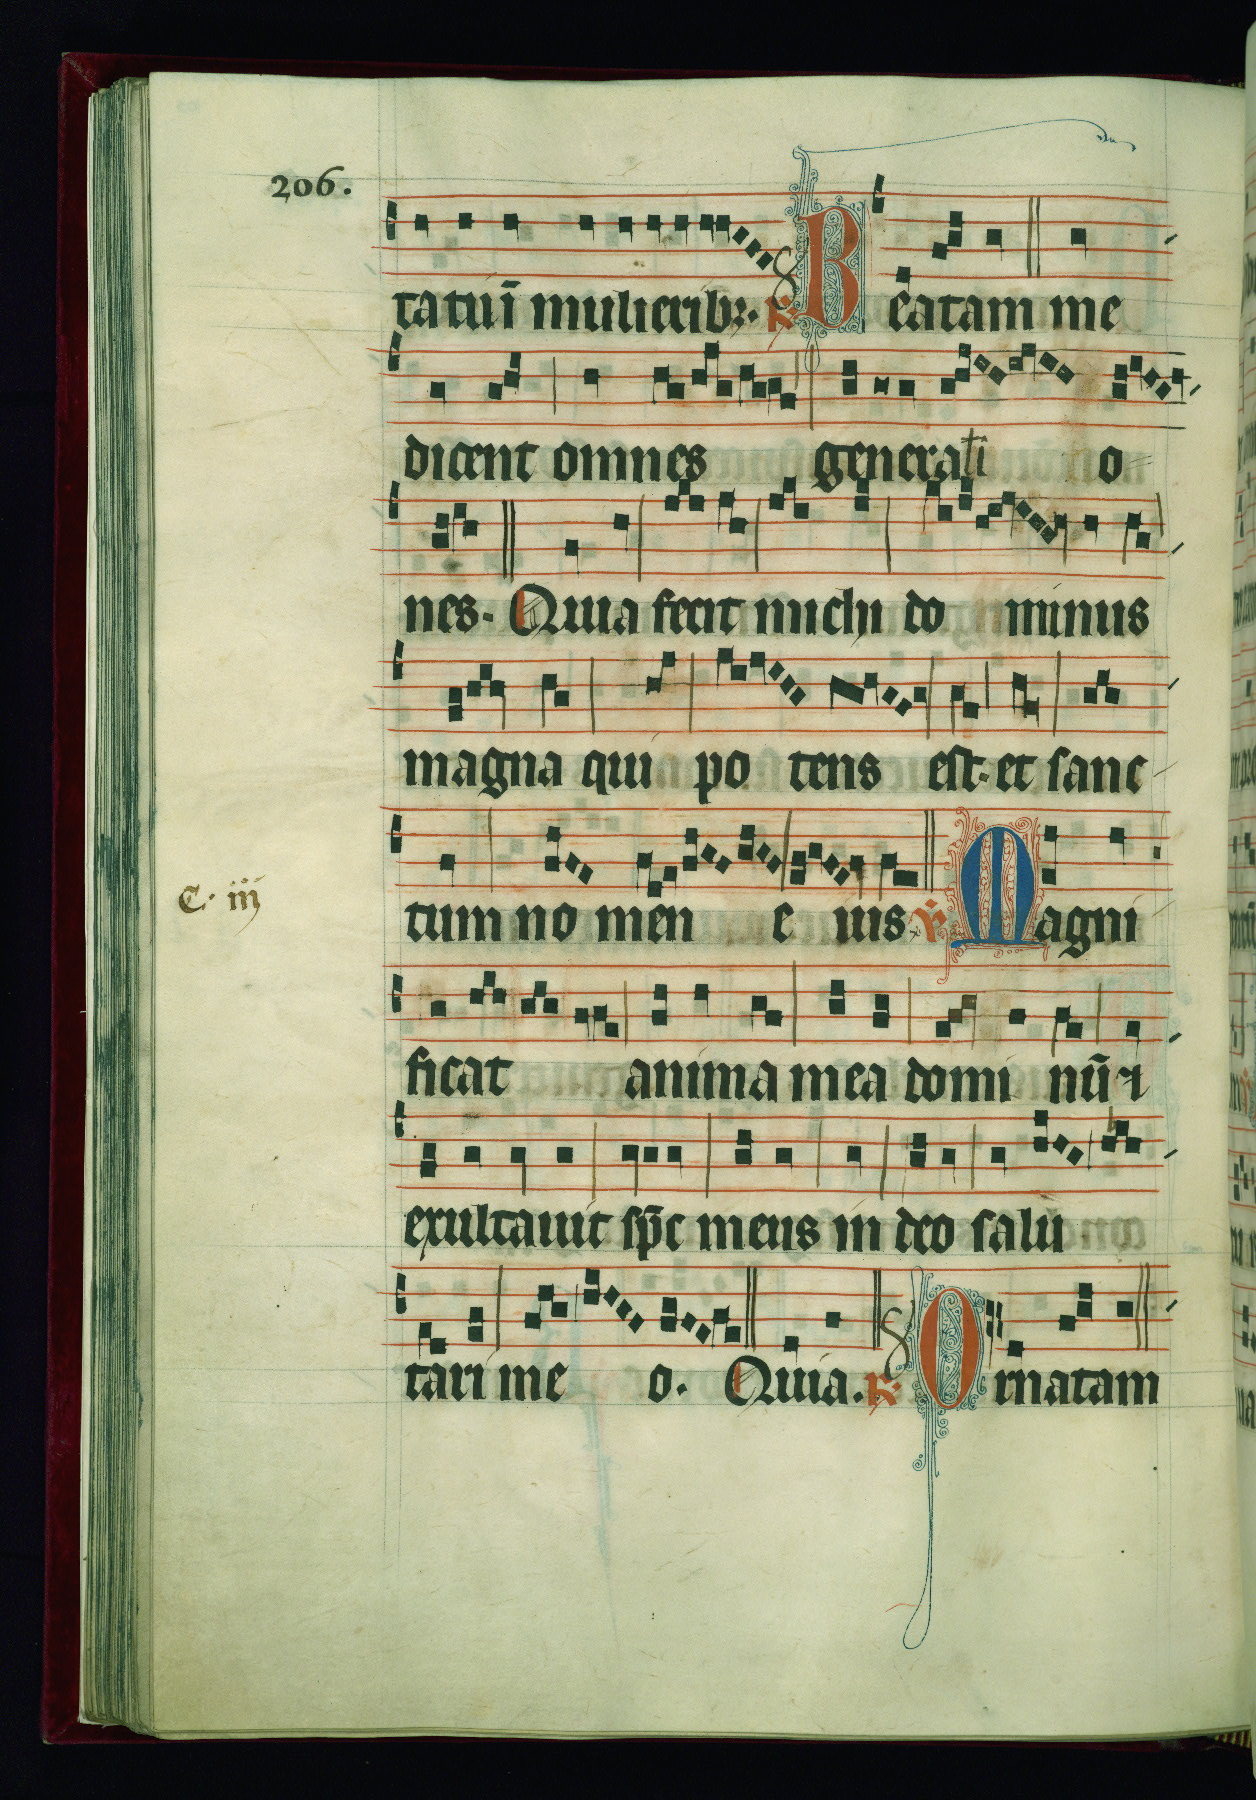 206.
tatuū mulieribꝫ. ℟ Beatam me
dicent omnes generati o
nes. Quia fecit michi do minus
magna qui po tens est. et sanc
C. iii
tum no men e ius ℣ Magni
ficat anima mea domi nū ⁊
exultauit sp̄c meus in deo salu
tari me o. Quia. ℟ Ornatam